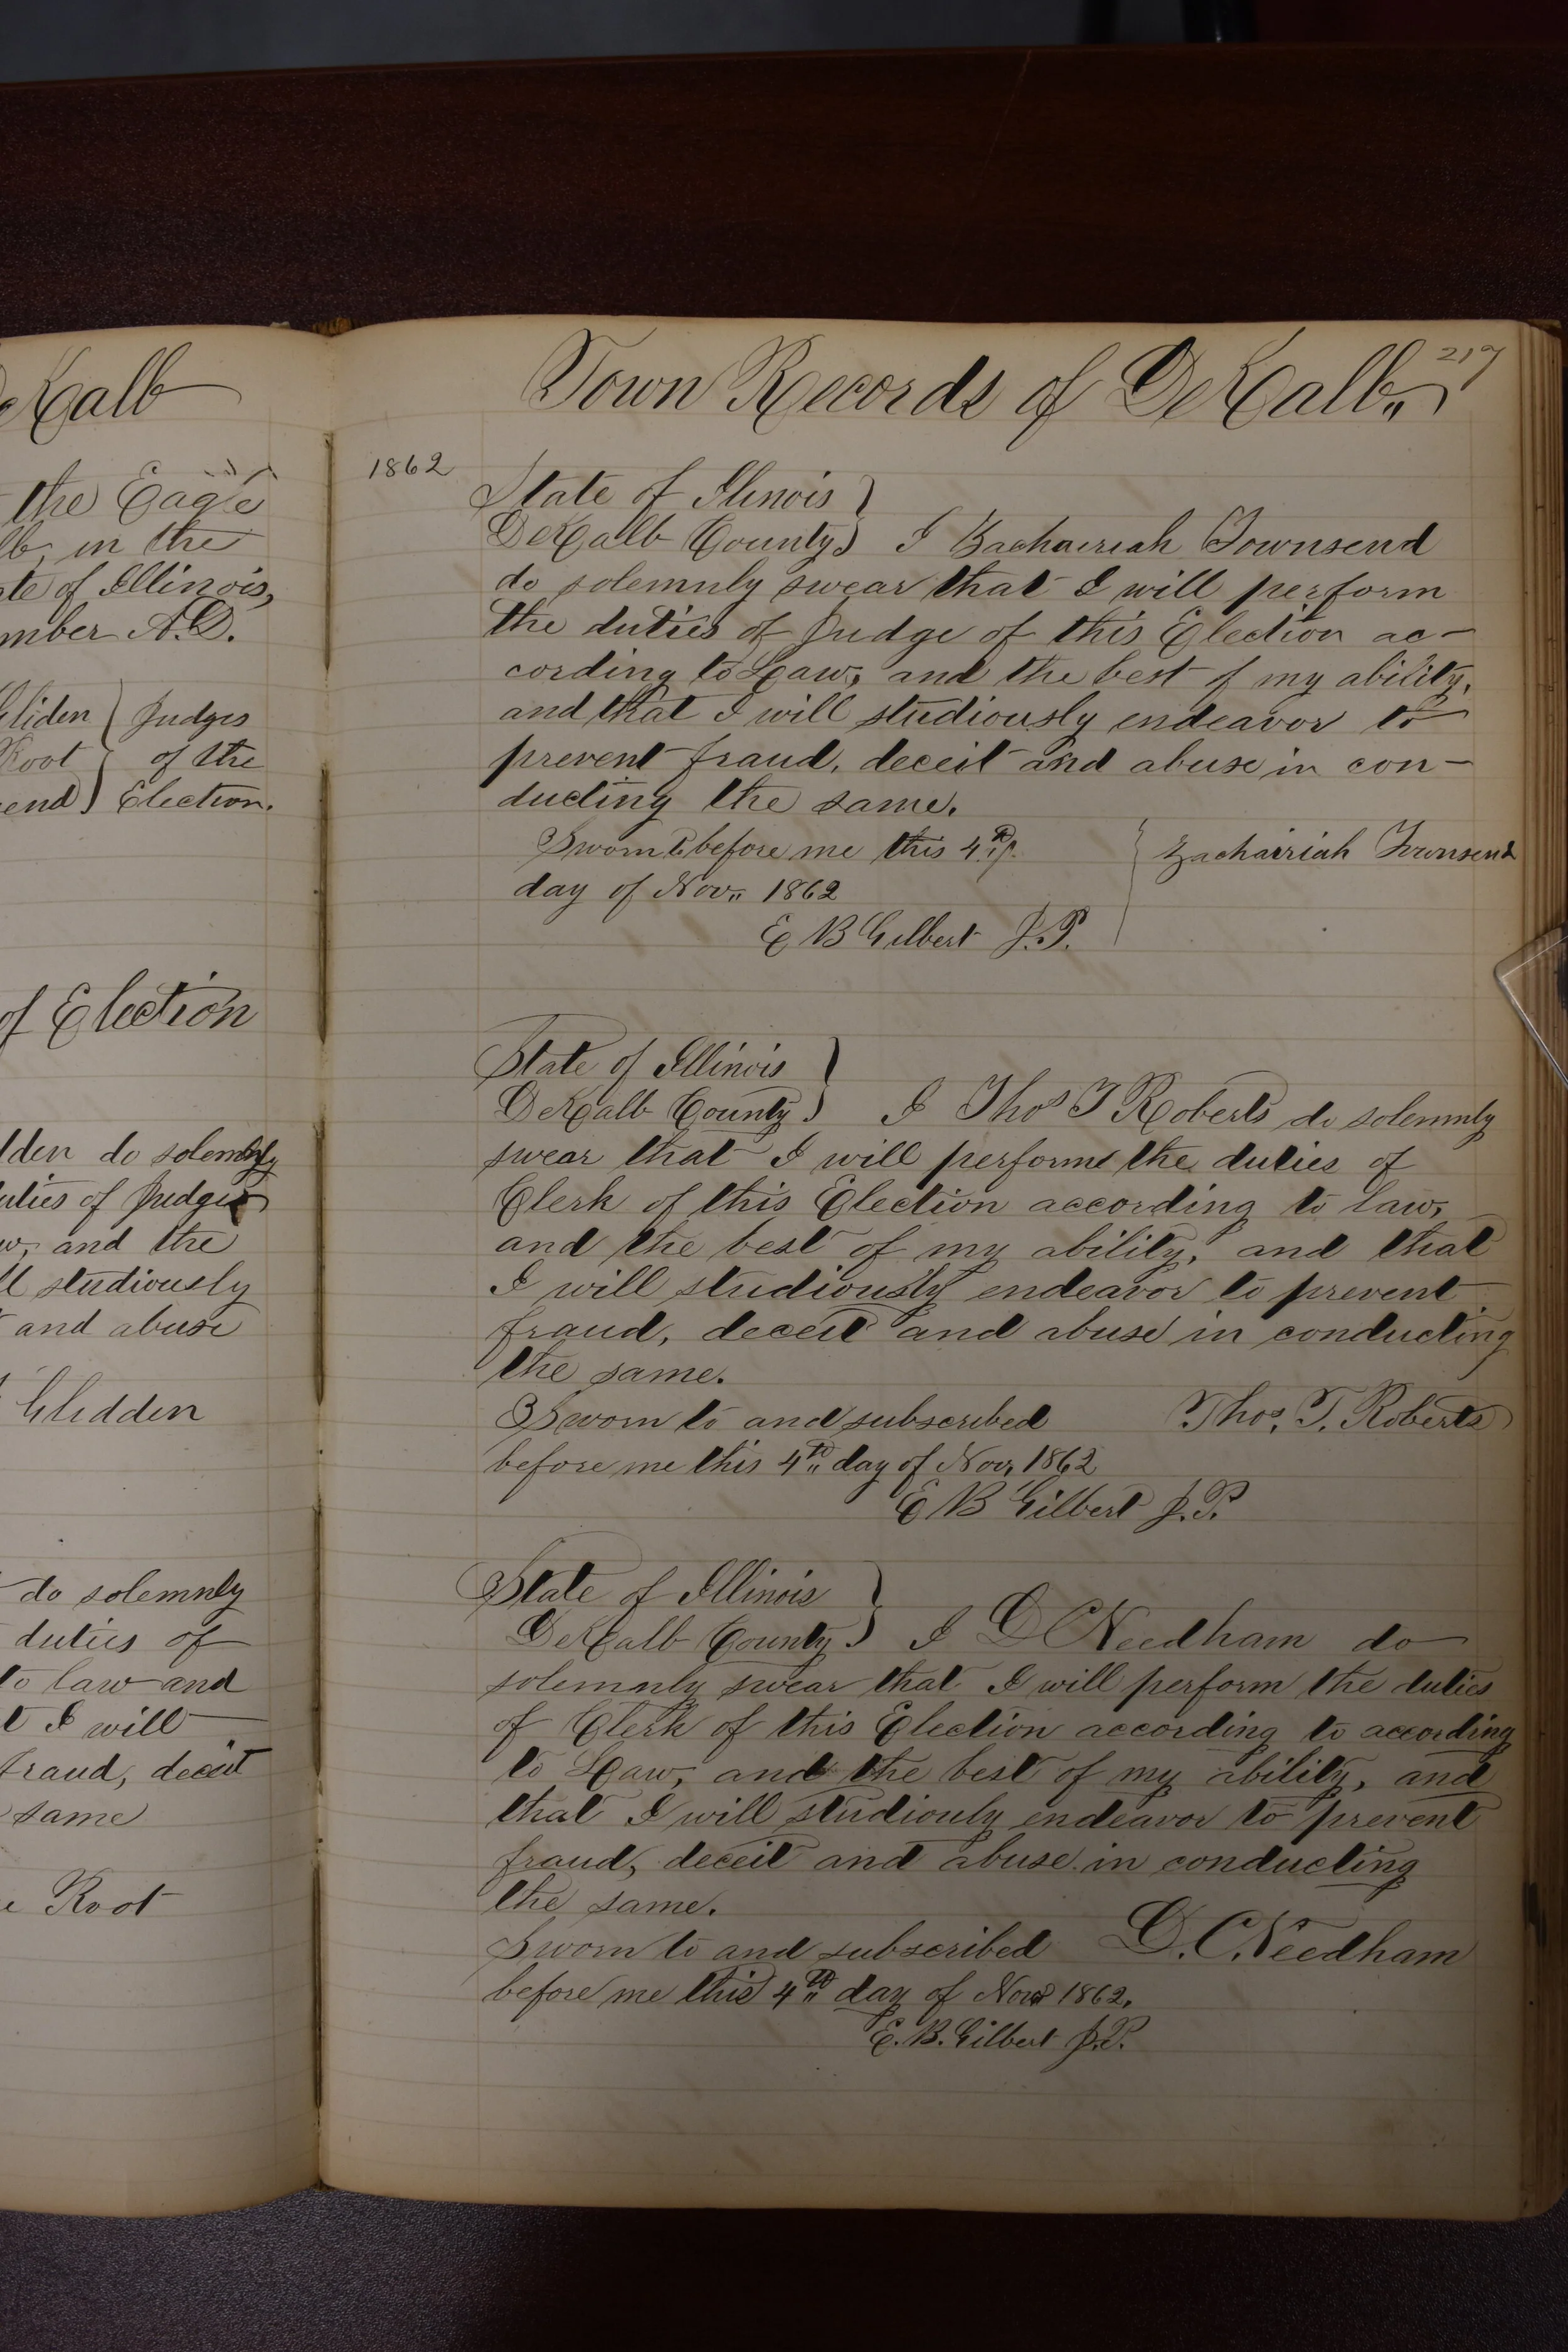 eKalb
the Eagle
lb, in the
te of Illinois,
mber A.D.
Gliden } Judges
Root } of the
end } Election.
of Election
dden do solemnly
uties of Judge
w, and the
ll studiously
and abuse
Glidden
do solemnly
duties of
to law and
t I will
fraud, deceit
same
e Root
217
Town Records of DeKalb,,
1862
State of Ilinois }
DeKalb County } I Zachairiah Townsend
do solemnly swear that I will perform
the duties of Judge of this Election ac-
cording to Law, and the best of my ability,
and that I will studiously endeavor to
prevent fraud, deceit and abuse in con-
ducting the same.
Sworn to before me this 4th } Zachairiah Townsend
day of Nov,, 1862
E B Gilbert J.P.
State of Illinois }
DeKalb County } I Thos T Roberts do solemnly
swear that I will perform the duties of
Clerk of this Election according to law,
and the best of my ability, and that
I will studiously endeavor to prevent
fraud, deceit and abuse in conducting
the same.
Sworn to and subscribed Thos. T. Roberts
before me this 4th,, day of Nov, 1862
E B Gilbert J.P.
State of Illinois }
DeKalb County } I D C Needham do
solemnly swear that I will perform the duties
of Clerk of this Election according to according
to Law, and the best of my ability, and
that I will studiouly endeavor to prevent
fraud, deceit and abuse in conducting
the same.
Sworn to and subscribed D. C. Needham
before me this 4th,, day of Nov 1862.
E. B. Gilbert J.P.